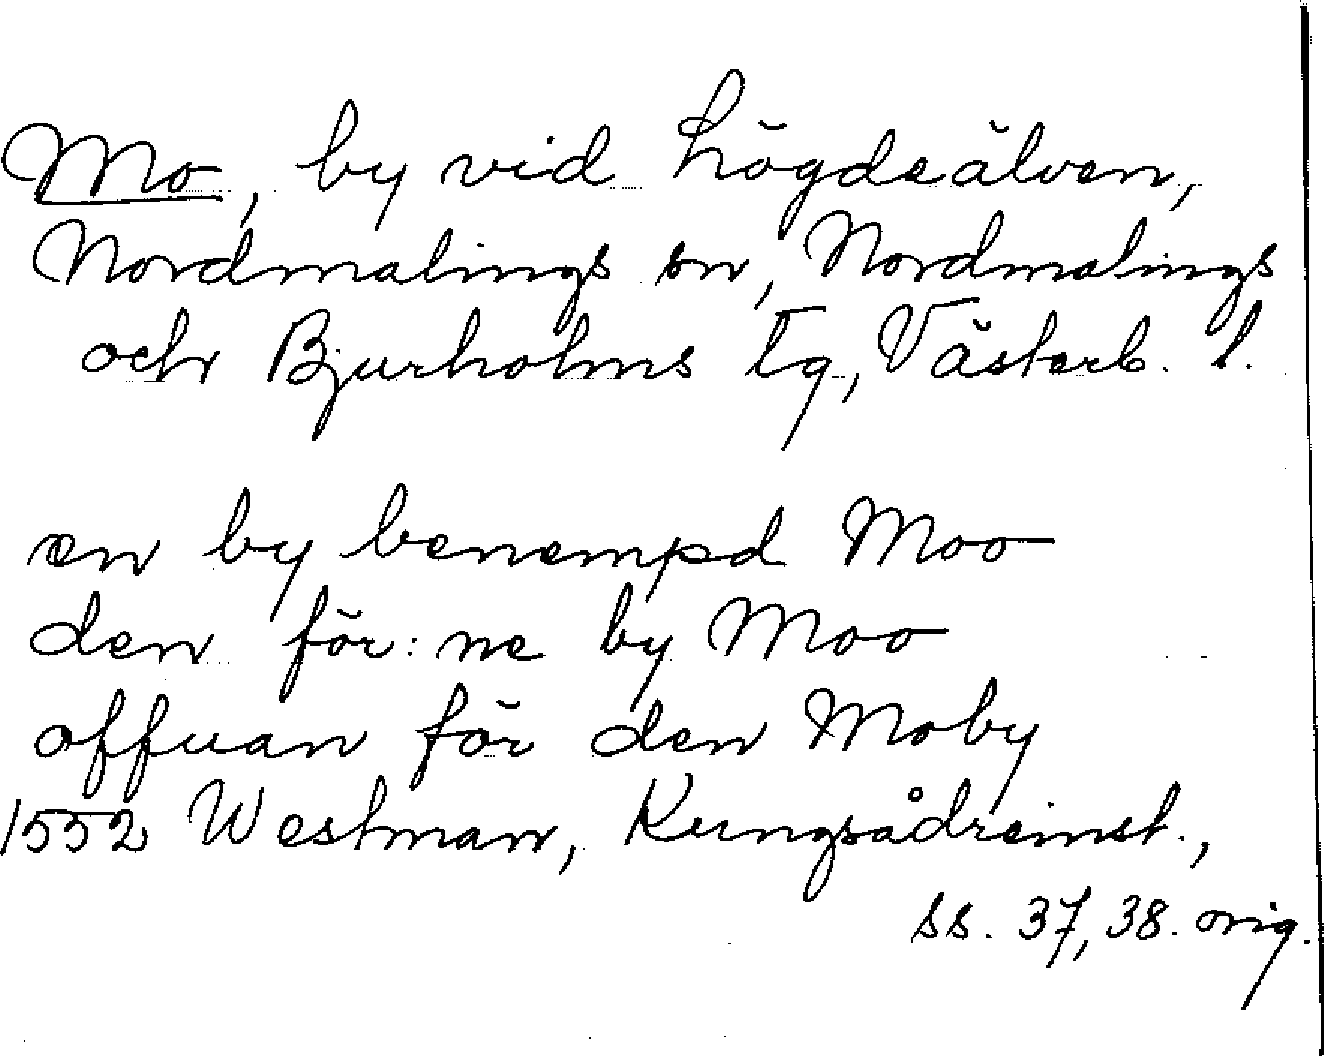 Mo, by vid Lögdeälven,
Nordmalings sn, Nordmalings
och Bjurholms tg, Västerb. l.
en by benempd Moo
den för: ne by Moo
offuan för den Moby
1552 Westman, Kungsådreinst.,
ss. 37, 38. orig.